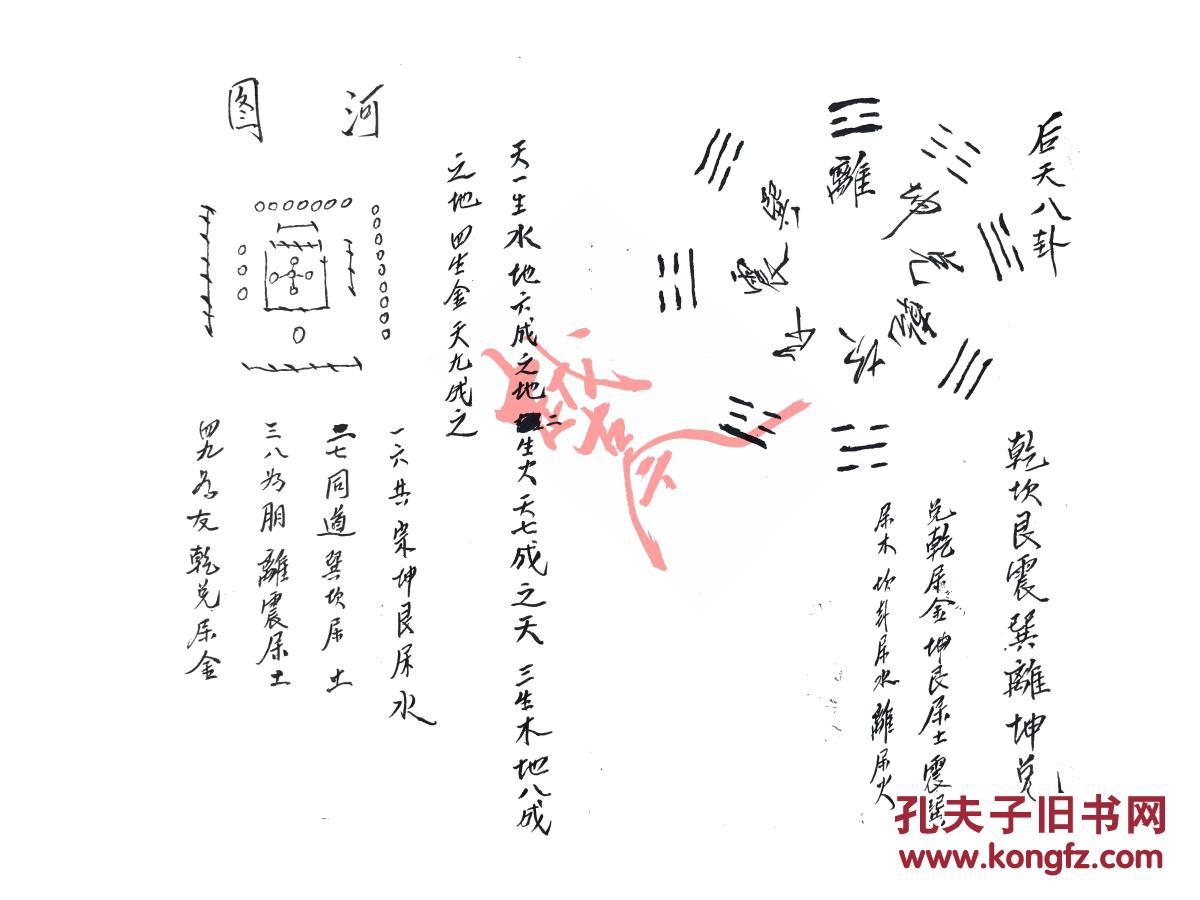 后天八卦
離
兑
乾坎艮震巽離坤兑
兑乾属金坤艮属土震巽
属木坎卦属水離属火
河图
天一生水地六成之地二生火天七成之天三生木地八成
之地四生金天九成之
一六共宗坤艮属水
二七同道巽坎属土
三八为朋離震属土
四九为友乾兑属金
孔夫子旧书网
www.kongfz.com